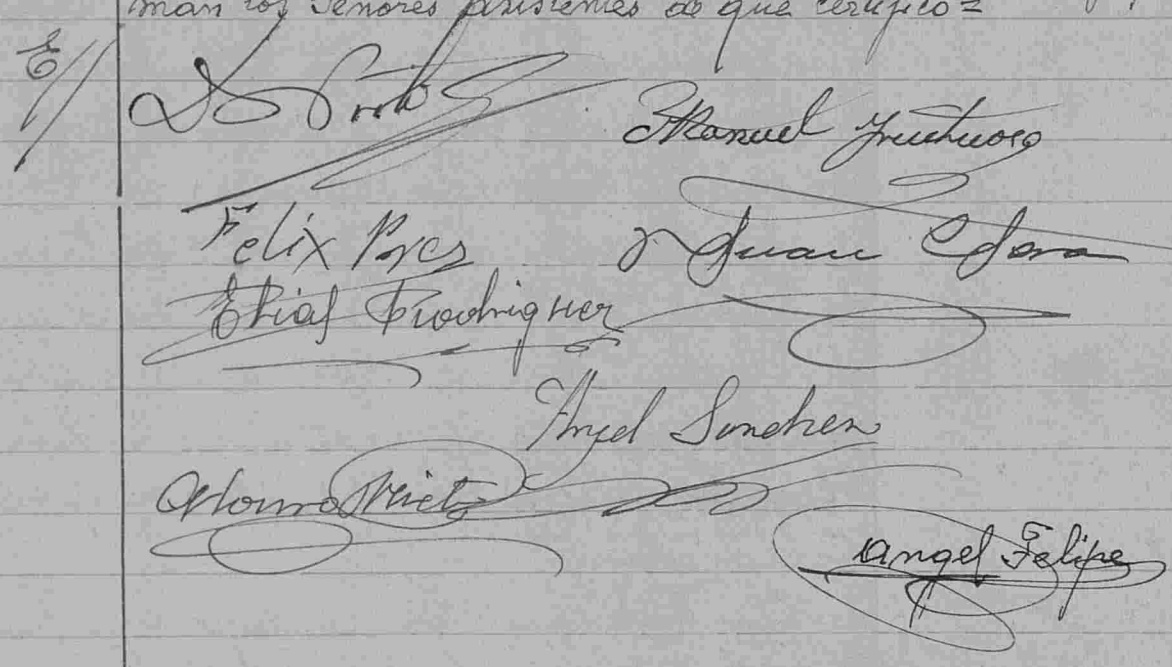 man los Señores asistentes de que certifico=
Manuel Fructuoso
Felix
Juan
Elias Rodriguez
Angel Sanchez
Alonso Nieto
Angel Felipe